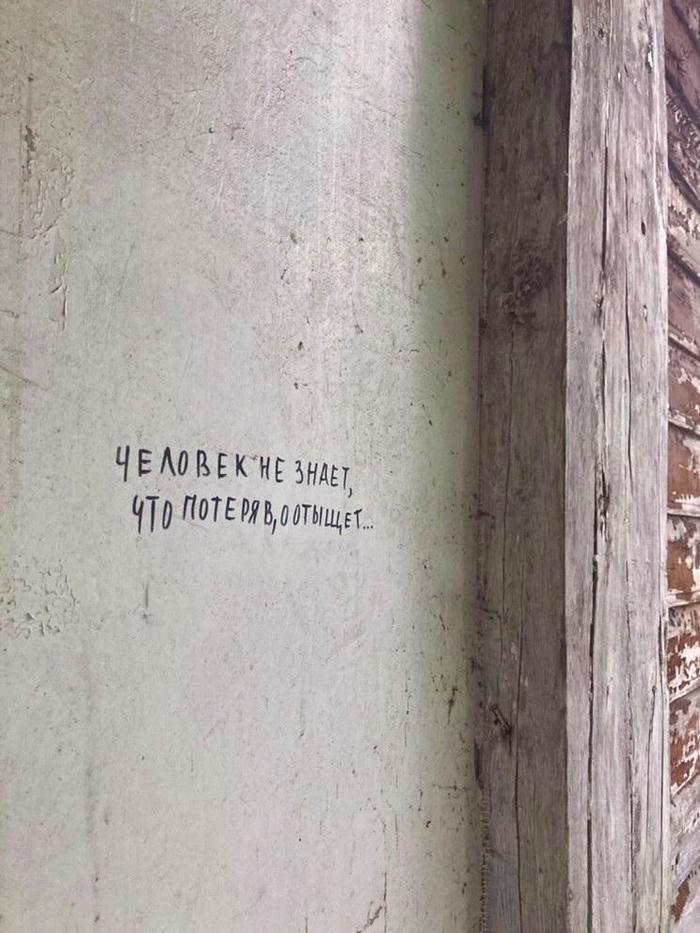 ЧЕЛОВЕК НЕ ЗНАЕТ,
ЧТО ПОТЕРЯВ, ООТЫЩЕТ...